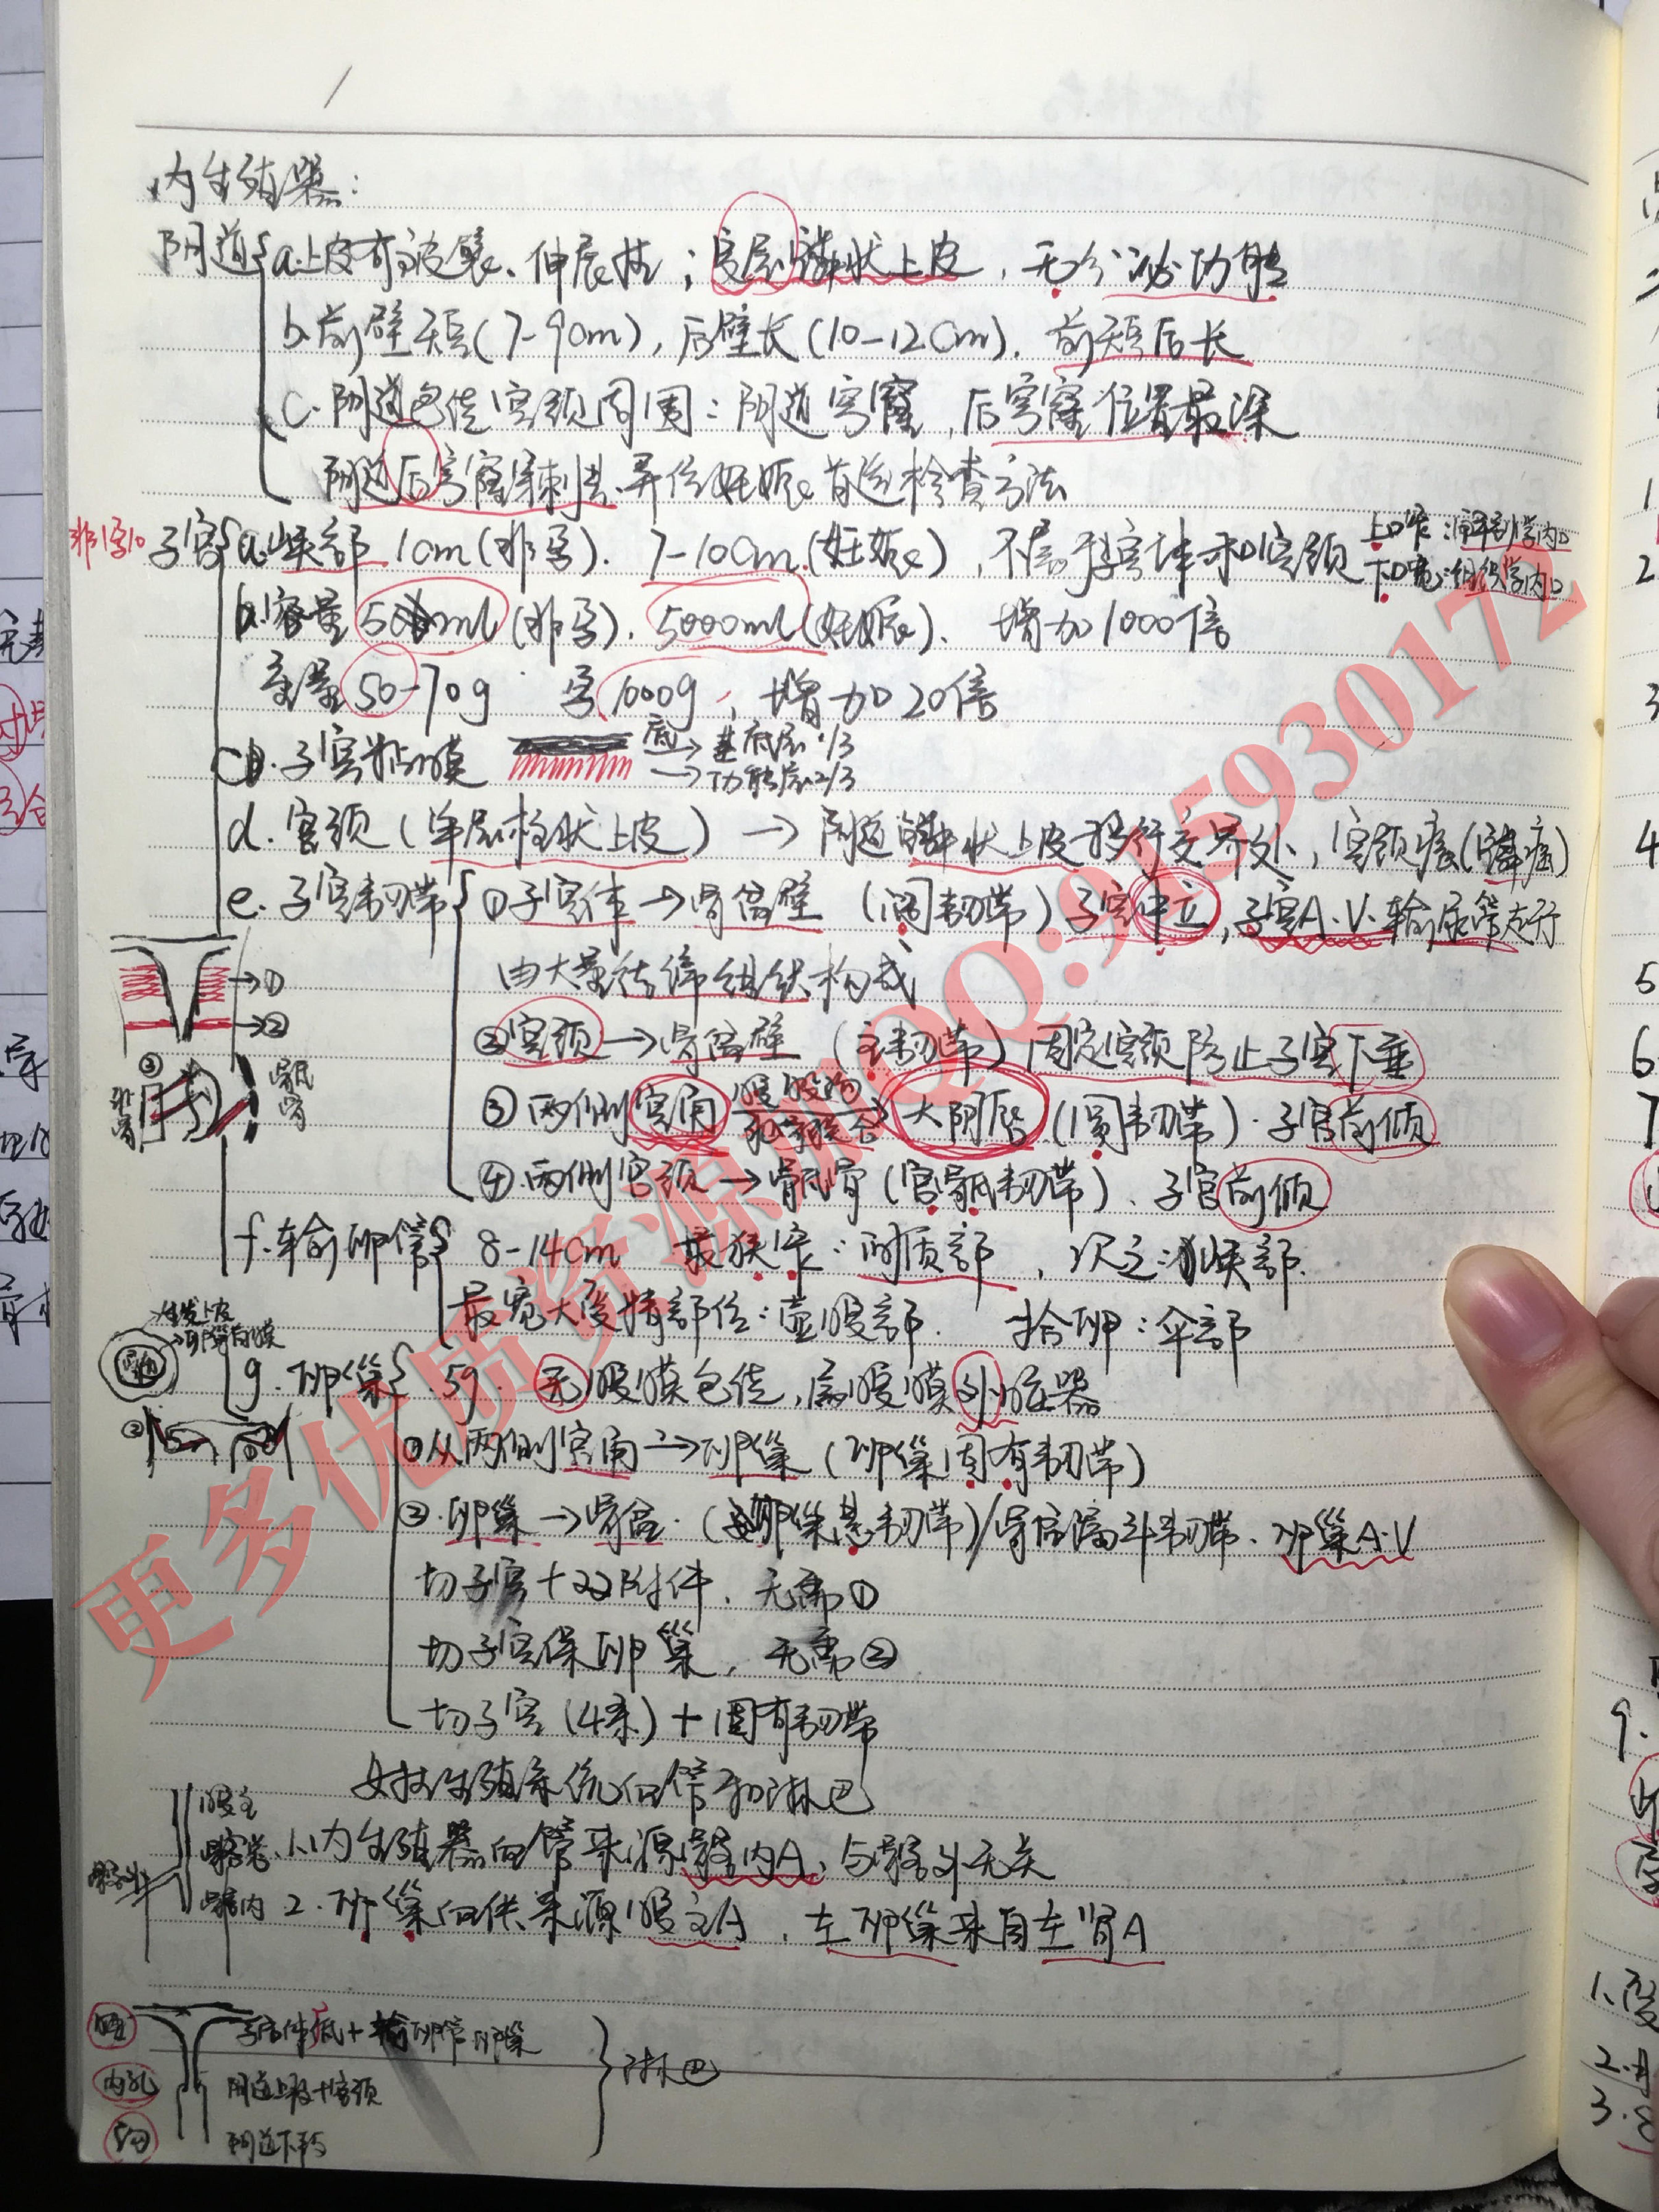 内生殖器:
阴道{a.上皮有皱襞、伸展性；复层鳞状上皮，无分泌功能
b.前壁短(7-9cm)，后壁长(10-12cm)．前短后长
c.阴道包绕宫颈周围：阴道穹窿，后穹窿位置最深
阴道后穹窿穿刺法．异位妊娠首选检查方法
非孕10 子宫{a.峡部 1cm(非孕)．7-10cm(妊娠)，不属于宫体和宫颈 上口窄：解剖学内口
下口宽：组织学内口
b.容量 5ml(非孕)．5000ml(妊娠)．增加1000倍
重量50-70g 孕1000g，增加20倍
c.子宫黏膜 底→基底层1/3
→功能层2/3
d.宫颈(单层柱状上皮)→阴道鳞状上皮移行交界处，宫颈癌(鳞癌)
e.子宫韧带{①子宫体→骨盆壁 (阔韧带)子宫中立，子宫A.V.输尿管走行
由大量结缔组织构成
→①
→②
②宫颈→骨盆壁 (主韧带)固定宫颈防止子宫下垂
③
耻骨
骶骨
③两侧宫角 腹股沟 耻骨联合→大阴唇(圆韧带)．子宫前倾
④.两侧宫颈→骶骨(宫骶韧带)、子宫前倾
f.输卵管{8-14cm 最狭窄：间质部，次之：峡部．
最宽大受精部位：壶腹部． 拾卵：伞部
生发上皮
→卵巢白膜
g.卵巢{.5g．无腹膜包绕，属腹膜外脏器
②
①
①从两侧宫角→卵巢(卵巢固有韧带)
②.卵巢→骨盆．(卵巢悬韧带)/骨盆漏斗韧带．卵巢A.V
切子宫+双附件．无需①
切子宫保卵巢，无需②
切子宫(4条)+固有韧带
女性生殖系统血管和淋巴
腹主
髂总
髂外
髂内
1.内生殖器血管来源髂内A，与髂外无关
2.卵巢血供来源腹主A，左卵巢来自左肾A
腰 子宫体底+输卵管．卵巢
内孔 阴道上段+宫颈 }淋巴
阴道下段
更多优质资源加QQ:915930172